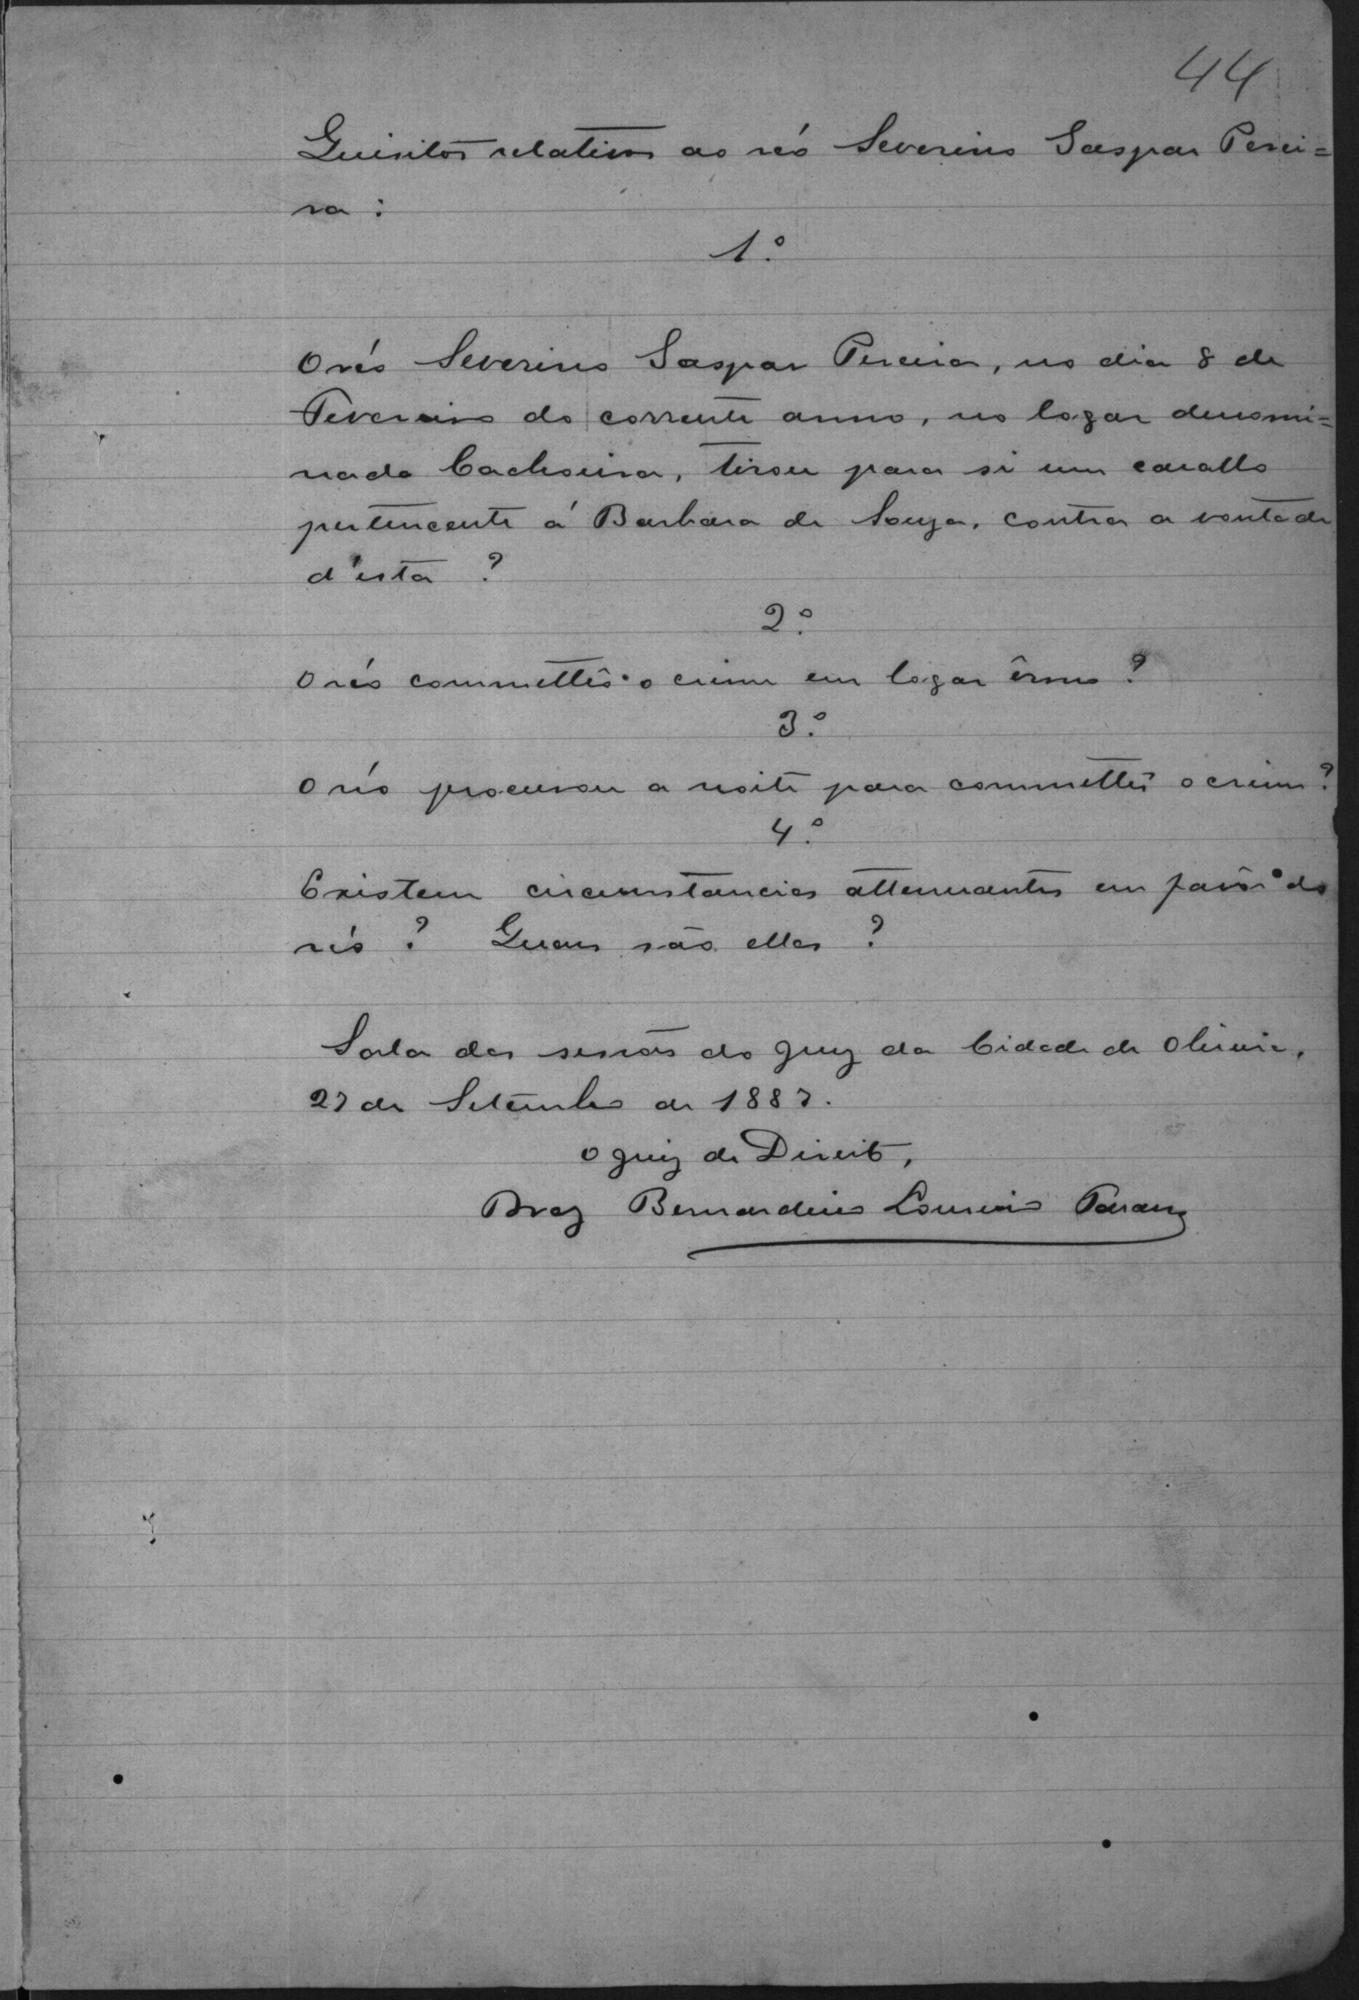 44
Quisitos relativos ao réo Severino Gaspar Perei=
ra :
1.º
O réo Severino Gaspar Pereira, no dia 8 de
Fevereiro do corrente anno, no logar denomi=
nado Cachoeira, tirou para si um cavallo
pertencente á Barbara de Souza, contra a vontade
d'esta ?
2.º
O réo commetteo o crime em logar êrmo ?
3.º
O réo procurou a noite para commetter o crime ?
4.º
Existem circumstancias attenuantes em favôr do
réo ? Quaes são ellas ?
Sala das sessões do Jury da Cidade de Oliveira,
27 de Setembro de 1887.
O Juiz de Direito,
Braz Bernardino Loureiro Tavares